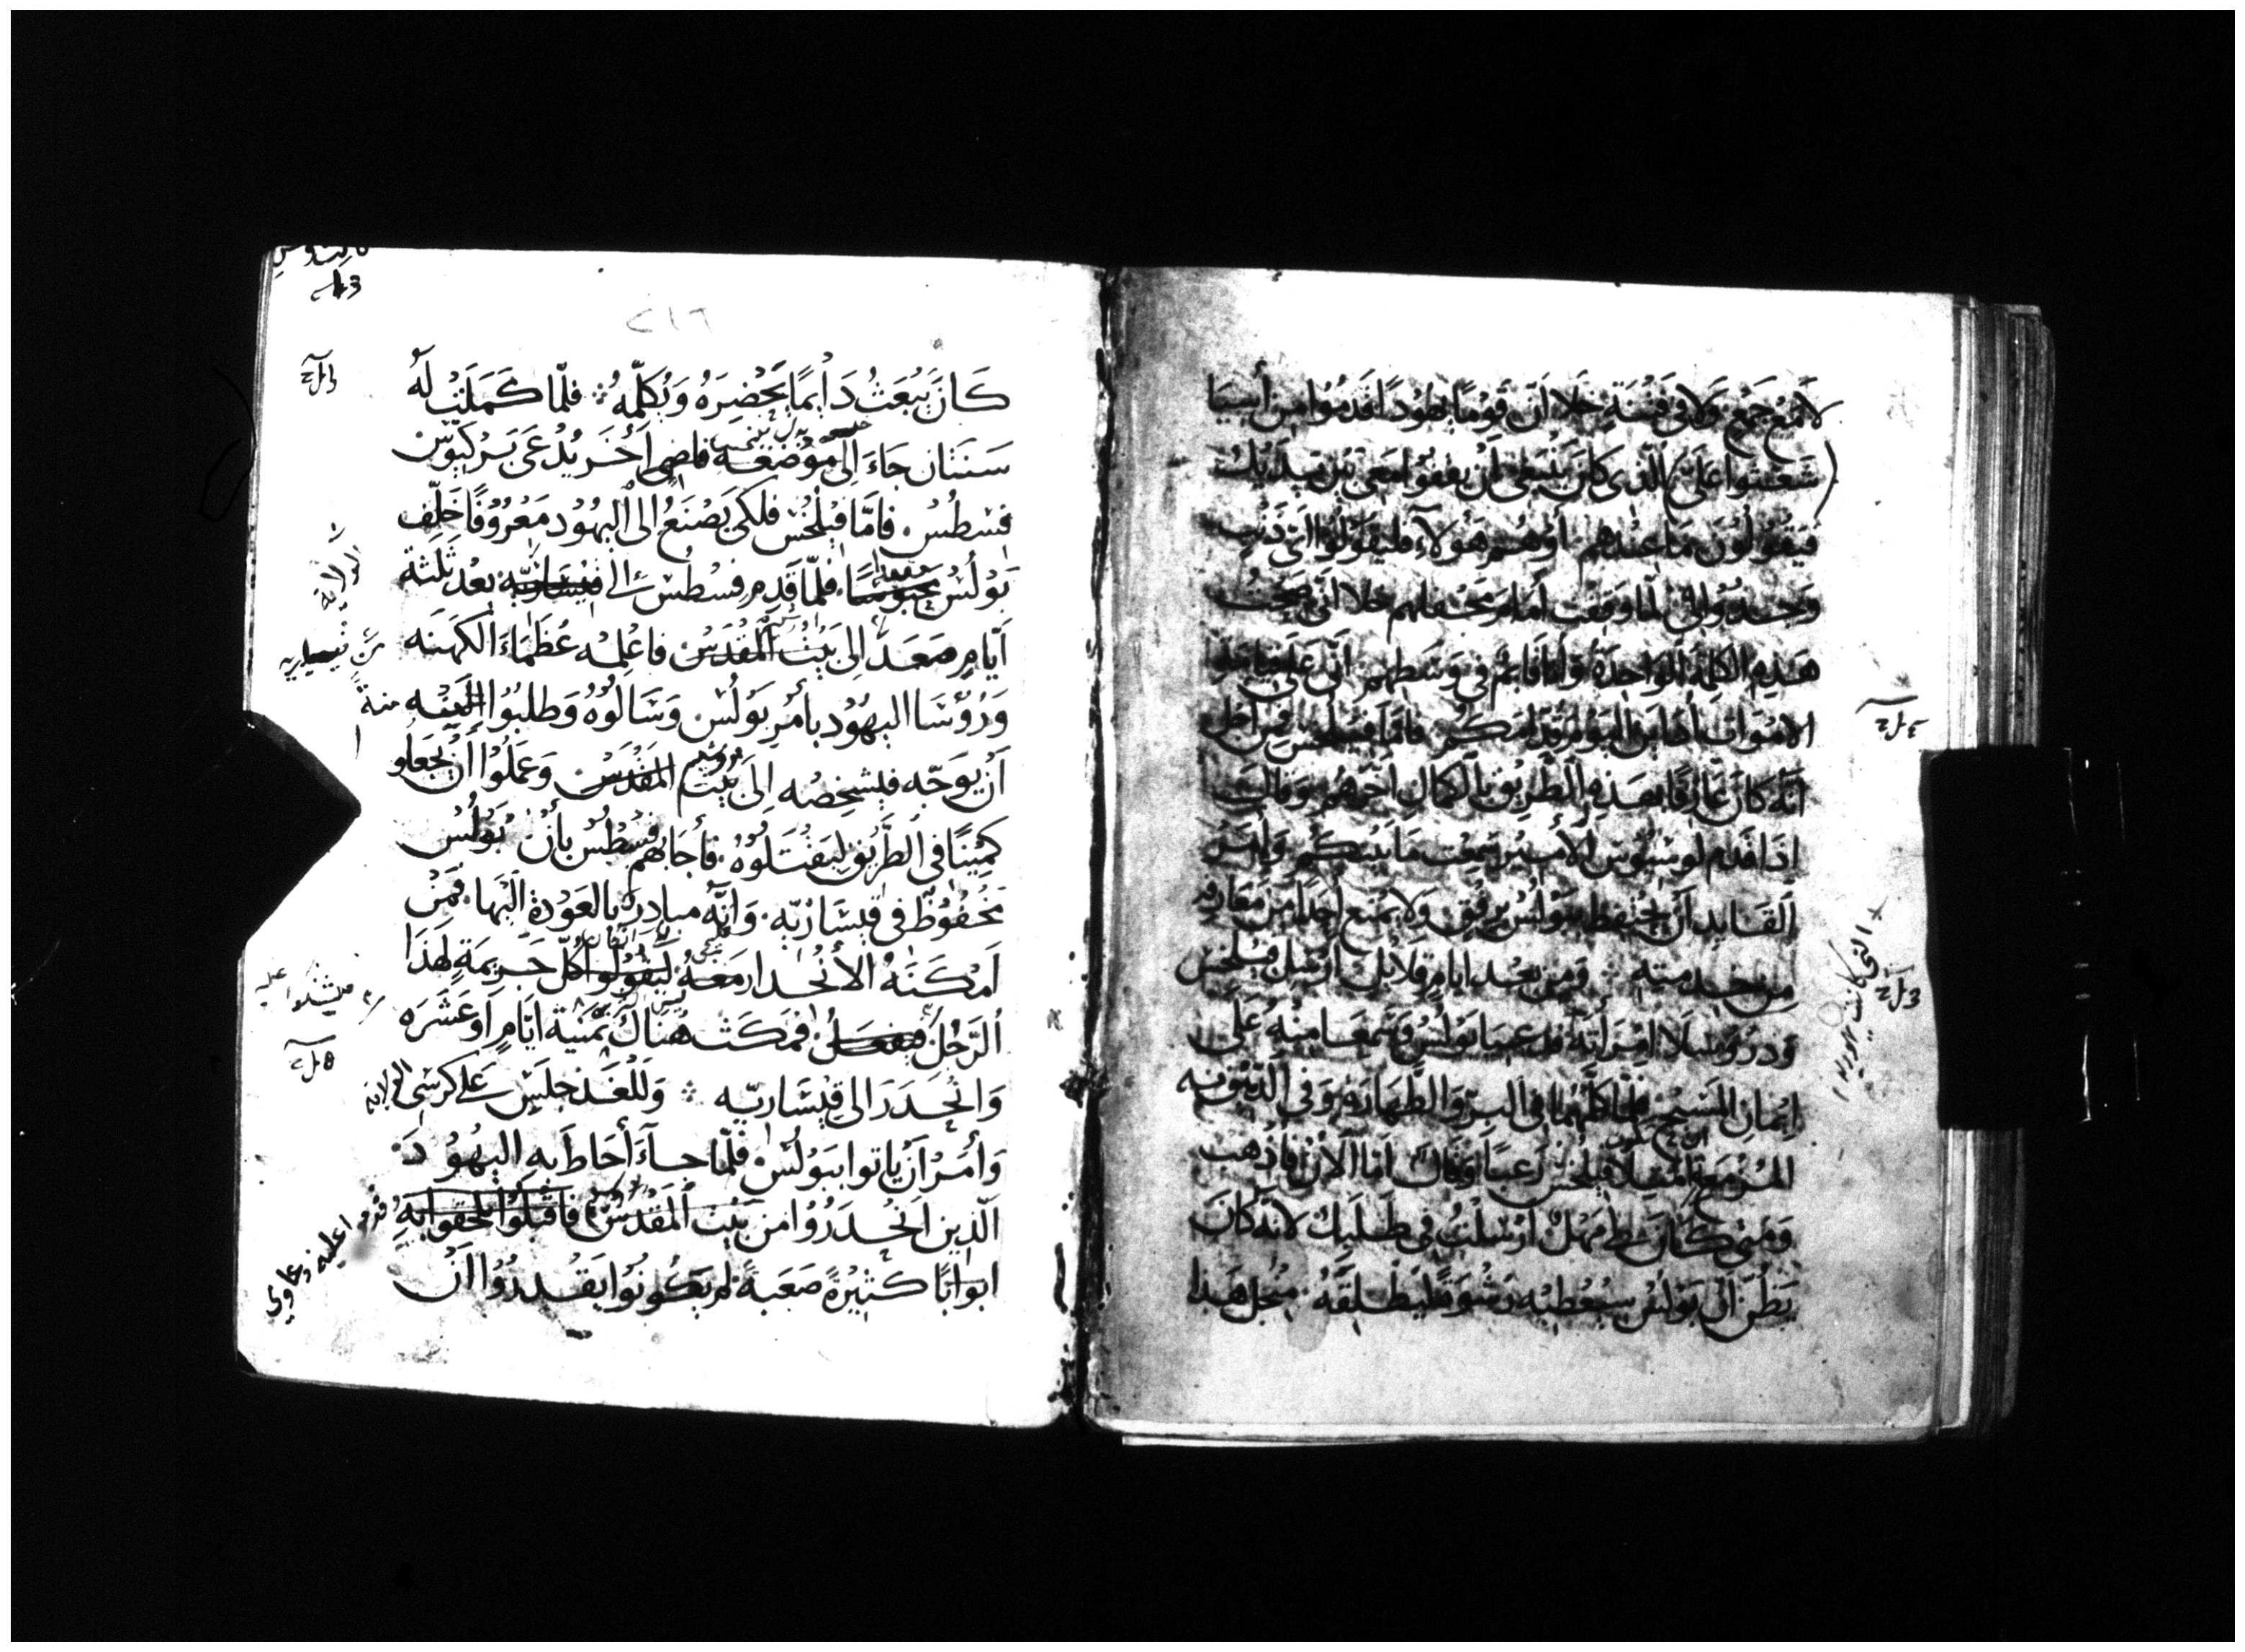 لا مع جمع ولا في فتنة خلا ان قوما يهودا قدموا من أسيا
(شغبوا علي) الذي كان ينبغي أن يقفوا معي بين يديك
فيقولون ما عندهم أو هم هولاء فليقولوا اي ذنب
وجدوا لي لما وقفت أمام محفلهم خلا اني صحت
هذه الكلمة الواحدة وأنا قائم في وسطهم اني على قيامة
الاموات أدان اليوم قدامكم فاما فيلخس فمن اجل
انه كان عارفا بهذه الطريق بالكمال اخرهم وقال
إذا قدم لوسيوس الأمير سمعت ما بينكم وأمر
القائد أن يحتفظ ببولس برفق ولا يمنع احدا من معارفه
من خدمته ومن بعد ايام قلائل ارسل فيلخس
ودروسلا امرأته فدعيا بولس وسمعا منه على
إيمان المسيح فلما كلمهما في البر والطهارة وفي الدينونة
المزمعة امتلا فيلخس رعبا وقال اما الآن فاذهب
ومتى كان لي مهل ارسلت في طلبك لانه كان
يظن ان بولس سيعطيه رشوة ليطلقه من اجل هذا
التي كانت يهودية
٢١٦
كان يبعث دائما يحضره ويكلمه فلما كملت له
سنتان جاء إلى موضعه قاضي اخر يدعى بركيوس
فسطس فاما فيلخس فلكي يصنع الى اليهود معروفا خلف
بولس محبوسا فلما قدم فسطس الى قيسارية بعد ثلثة
أيام صعد الى بيت المقدس فاعلمه عظماء الكهنة
ورؤسا اليهود بأمر بولس وسالوه وطلبوا اليه
أن يوجه فيشخصه إلى بيت المقدس وعملوا أن يجعلو
كمينا في الطريق ليقتلوه فأجابهم فسطس بأن بولس
محفوظ في قيسارية وانه مبادر بالعودة اليها فمن
امكنه الأنحدار معه ليقولوا كل جريمة لهذا
الرجل فليفعل فمكث هناك ثمنية ايام او عشره
وانحدر الى قيسارية وللغد جلس على كرسي الولاية
وأمر أن ياتوا ببولس فلما جاء أحاط به اليهود
الذين انحدروا من بيت المقدس فاقبلوا يلحقوا به
ابوابا كثيرة صعبة لم يكونوا يقدروا أن
الولاية
منة
قدموا عليه دعاوي